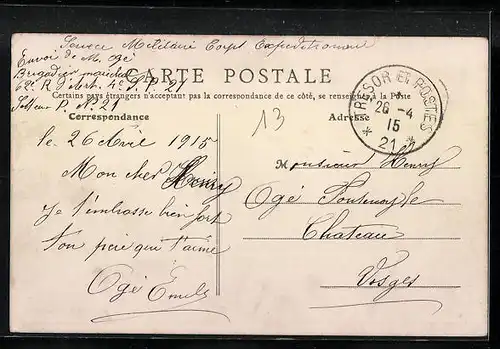 Service Militaire Corps Expeditionnaire
Envoi de M. Ogé
Brigadier
62e R. d'Art. 4e S. P. 21
Secteur P. No. 21
CARTE POSTALE
Certains pays étrangers n'acceptant pas la correspondance de ce côté, se renseigner à la Poste
Correspondance
13
Adresse
TRESOR ET POSTES
26-4
15
* 21 *
le 26 Avril 1915
Mon cher Henry
Je t'embrasse bien fort
Ton père qui t'aime
Ogé Emile
Monsieur Henry
Ogé Fontenoy le
Chateau
Vosges